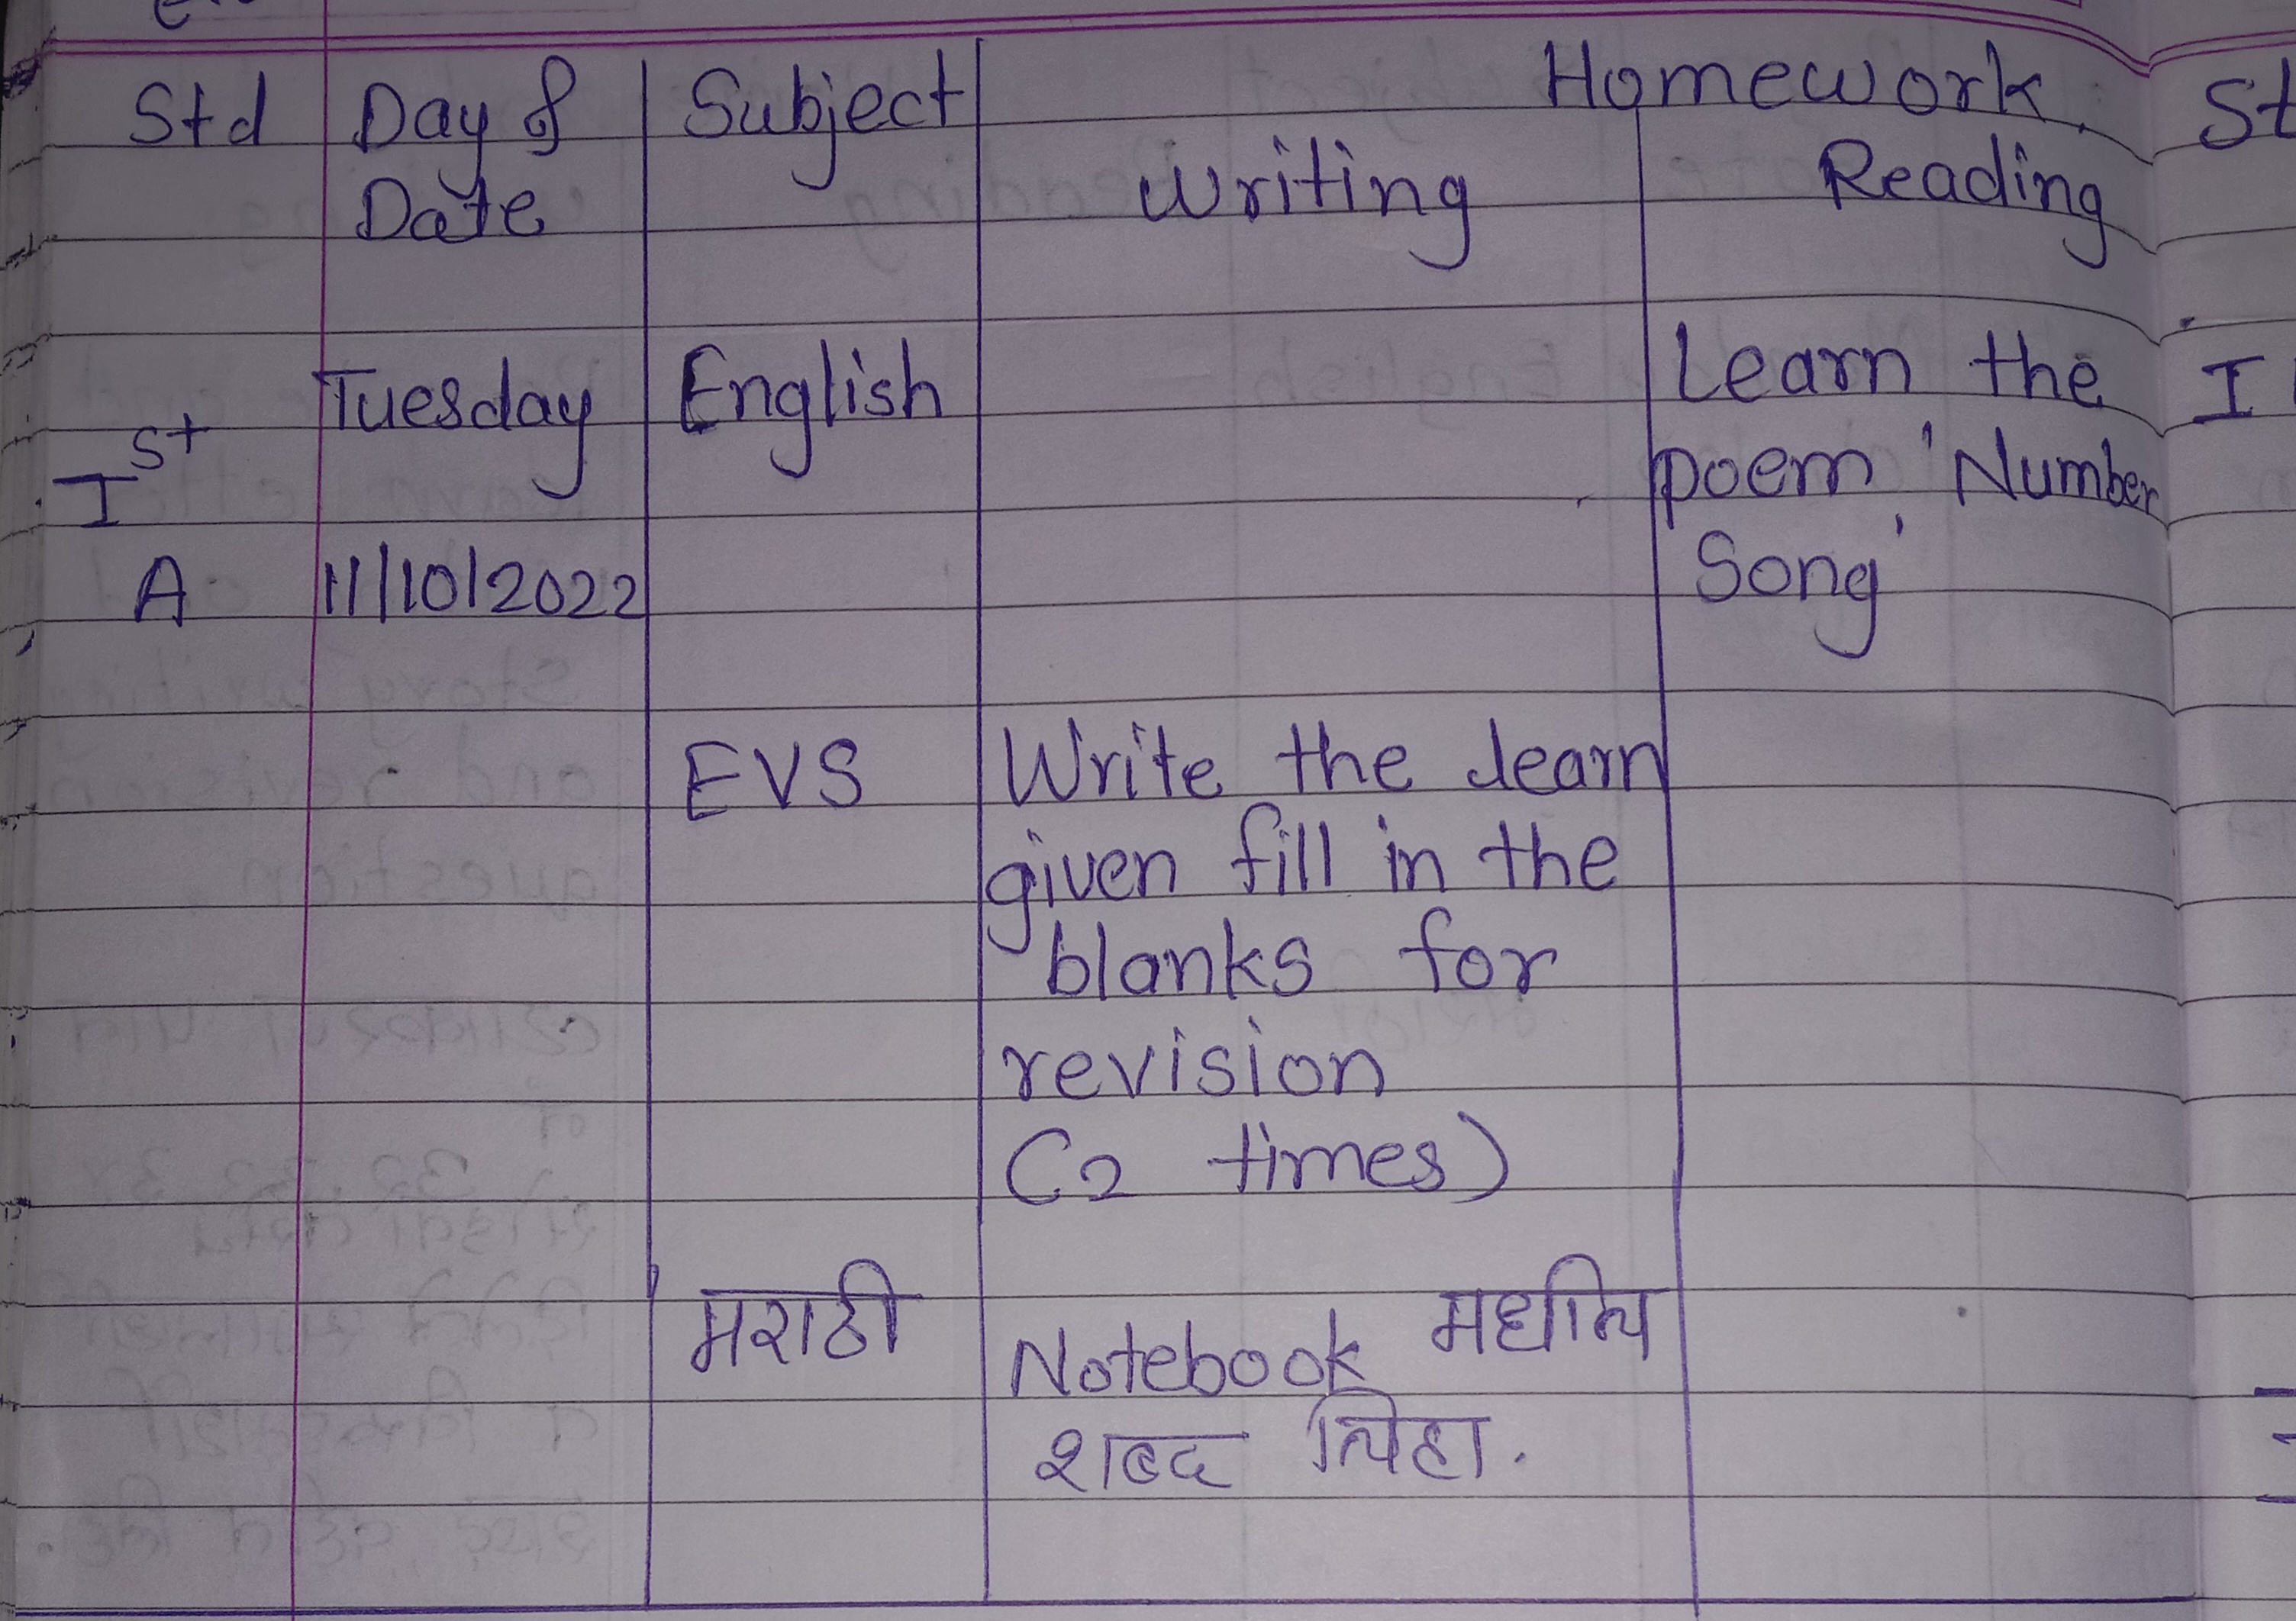 Std Day & Subject Homework
Date Writing Reading
Tuesday English Learn the
Ist poem 'Number
A 11/10/2022 Song'
EVS Write the learn
given fill in the
blanks for
revision
(2 times)
मराठी Notebook मधील
शब्द लिहा.
St
I